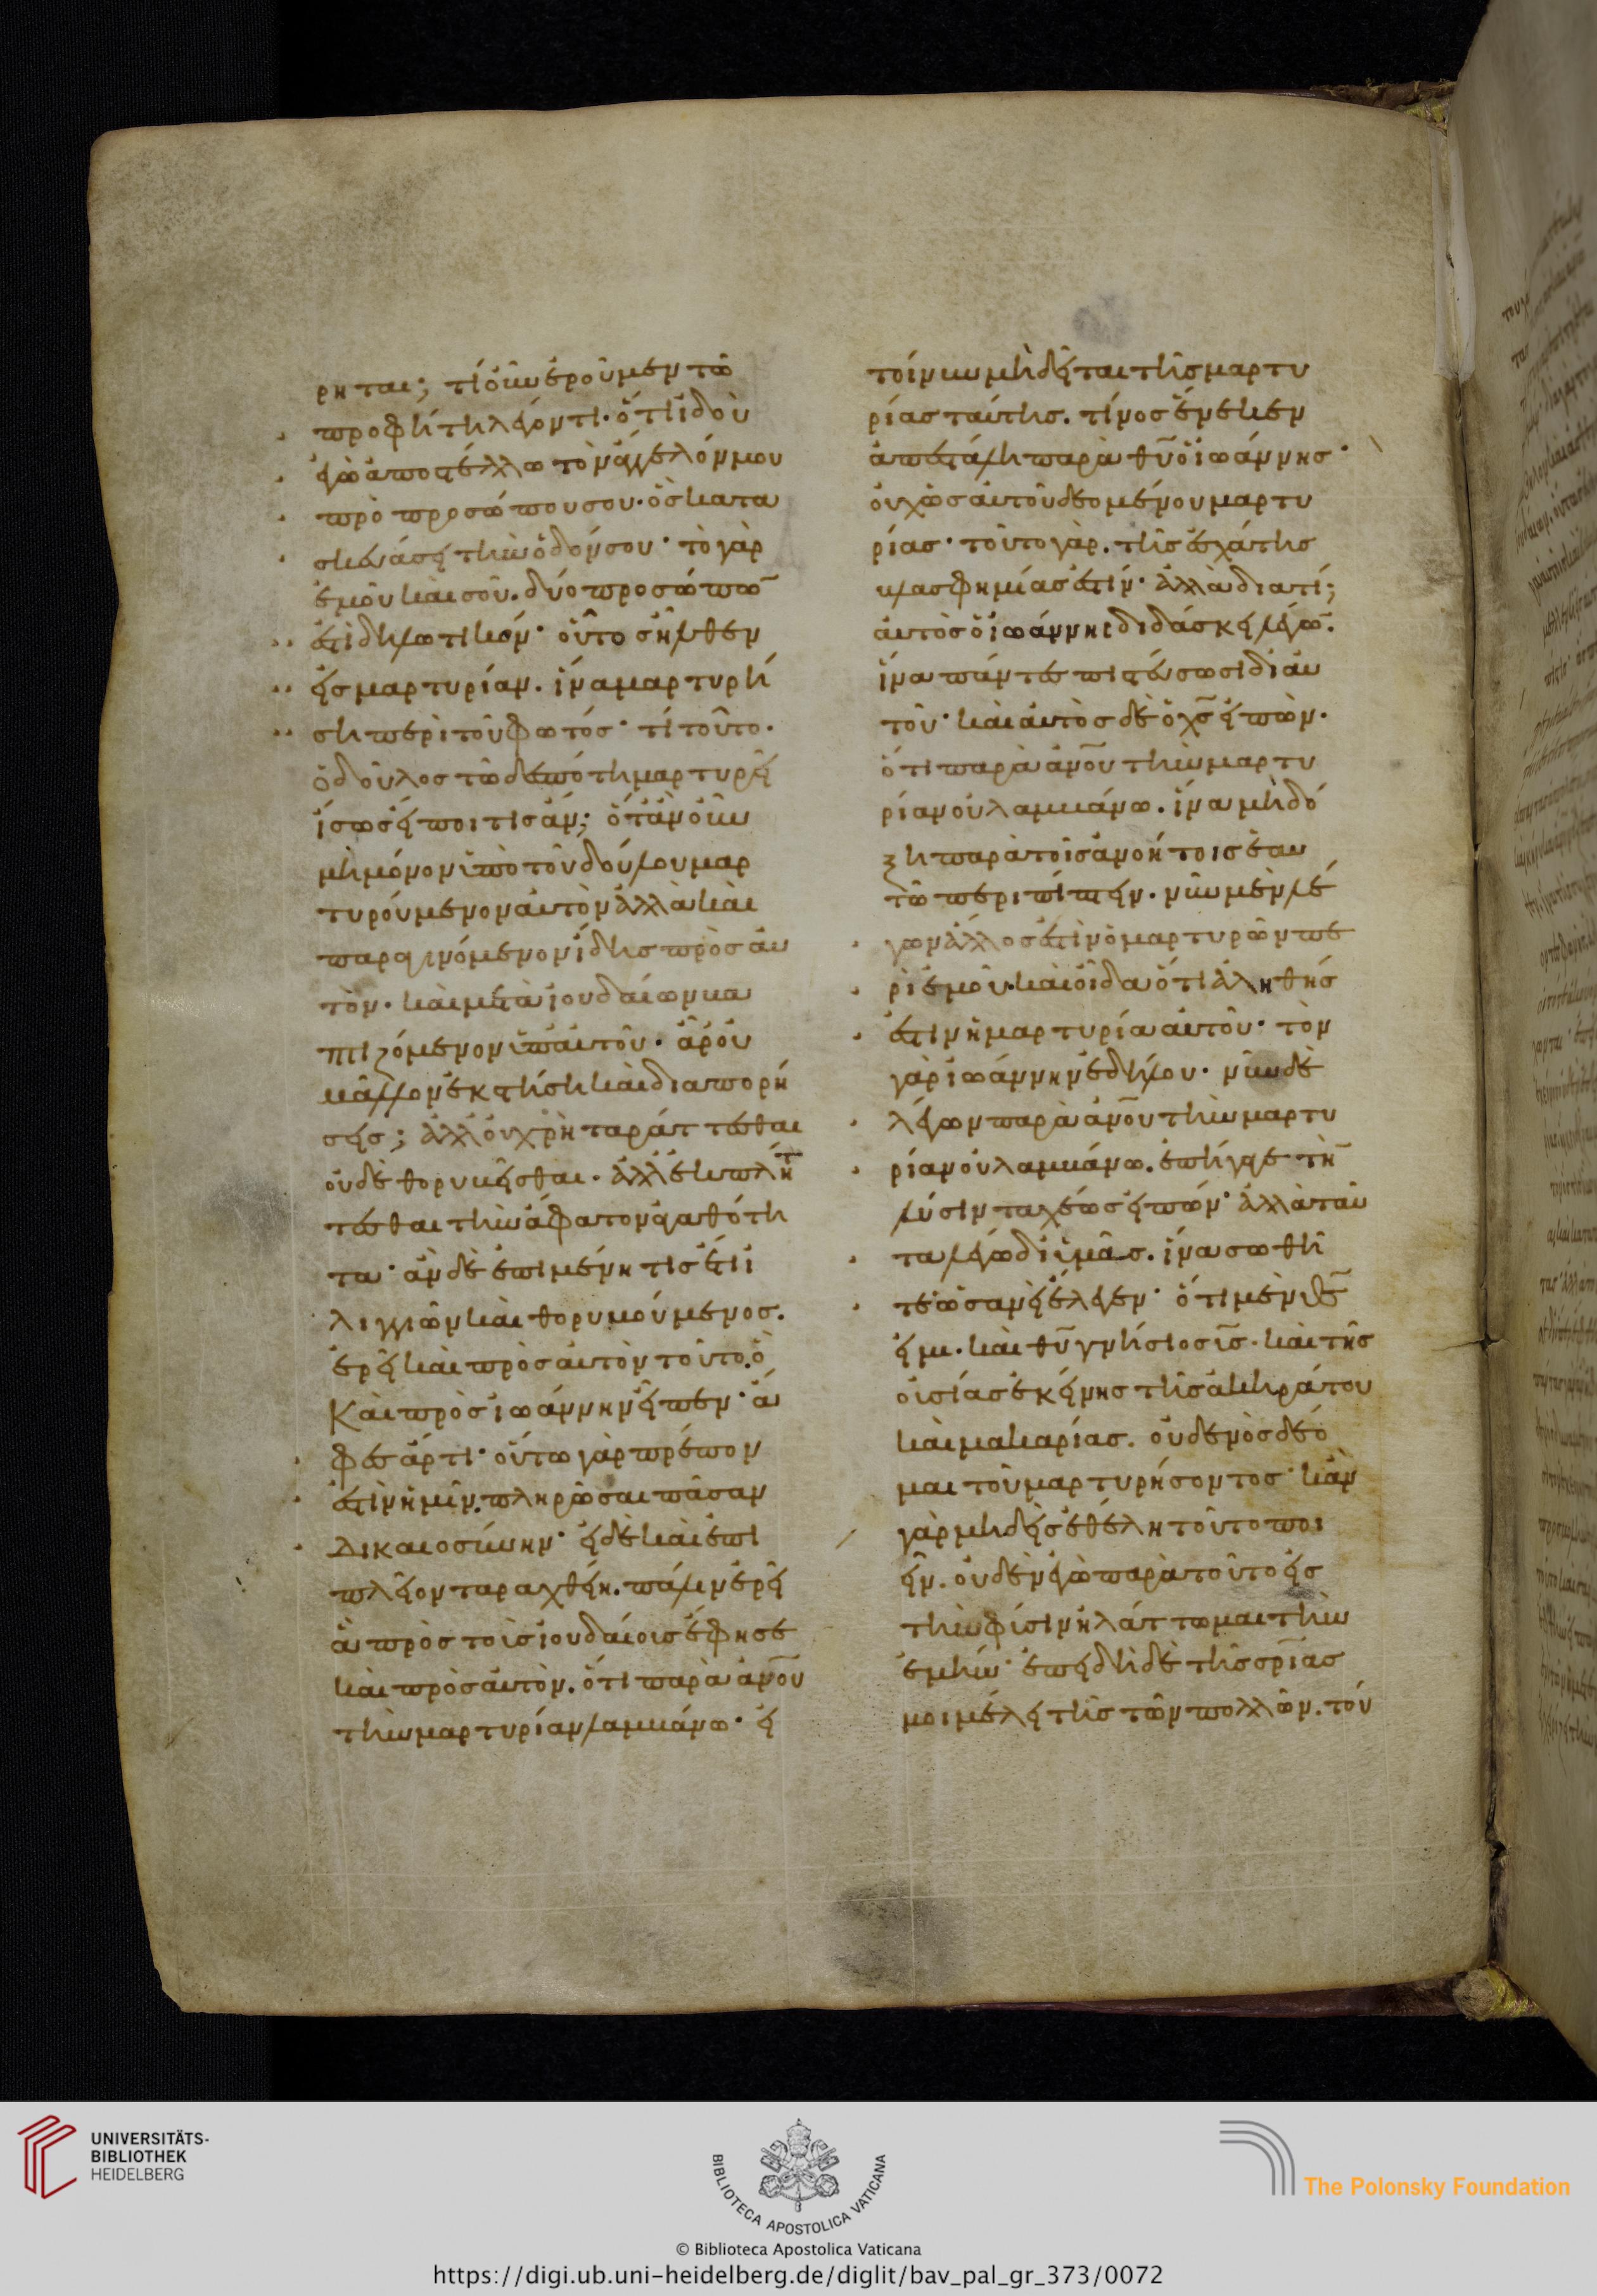 ρηται; τί οὖν ἐροῦμεν τῶ
προφήτη λέγοντι· ὅτι ἰδοὺ
ἐγὼ ἀποστέλλω τὸν ἄγγελόν μου
πρὸ προσώπου σου· ὃς κατα
σκευάσει τὴν ὁδόν σου· τὸ γὰρ
ἐμοῦ καὶ σοῦ. δύο προσώπω̅
ἐστὶ δηλωτικόν· οὗτος ἦλθεν
εἰς μαρτυρίαν. ἵνα μαρτυρή
ση περὶ τοῦ φωτός· τί τοῦτο.
ὁ δοῦλος τῶ δεσπότη μαρτυρεῖ
ἴσως εἴποι τις ἄν; ὅταν οὖν
μὴ μόνον ὑπὸ τοῦ δούλου μαρ
τυρούμενον αὐτὸν ἀλλὰ καὶ
παραγινόμενον ἴδης πρὸς αὐ
τὸν. καὶ μετὰ ἰουδαίων βα
πτιζόμενον ὑπ' αὐτοῦ. ἆρ' οὐ
μᾶλλον ἐκστήση καὶ διαπορή
σεις; ἀλλ' οὐ χρὴ ταράττεσθαι
οὐδὲ θορυβεῖσθαι. ἀλλ' ἐκπλήτ
τεσθαι τὴν ἄφατον ἀγαθότη
τα· ἂν δὲ ἐπιμένη τις ἔτι ἰ
λιγγιῶν καὶ θορυβούμενος.
ἐρεῖ καὶ πρὸς αὐτὸν τοῦτο. ὃ
Καὶ πρὸς ἰωάννην εἶπεν· ἄ
φες ἄρτι· οὕτω γὰρ πρέπον
ἐστὶν ἡμῖν. πληρῶσαι πᾶσαν
δικαιοσύνην· εἰ δὲ καὶ ἐπι
πλεῖον ταραχθείη. πάλιν ἐρεῖ
ἃ πρὸς τοῖς ἰουδαίοις ἔφησε
καὶ πρὸς αὐτὸν. ὅτι παρὰ ἀν̅ου
τὴν μαρτυρίαν λαμβάνω· εἰ
τοίνυν μὴ δεῖται τῆς μαρτυ
ρίας ταύτης. τίνος ἕνεκεν
ἀπεστάλη παρὰ θ̅υ ὁ ἰωάννης·
οὐχ ὡς αὐτοῦ δεομένου μαρτυ
ρίας· τοῦτο γὰρ. τῆς ἐσχάτης
βλασφημίας ἐστίν· ἀλλὰ διατί;
αὐτὸς ὁ ἰωάννης διδάσκει λέγω̅.
ἵνα πάντες πιστεύσωσι δι' αὐ
τοῦ· καὶ αὐτὸς δὲ ὁ χ̅ς εἰπὼν.
ὅτι παρὰ ἀν̅ου τὴν μαρτυ
ρίαν οὐ λαμβάνω. ἵνα μὴ δό
ξη παρὰ τοῖς ἀνοήτοις ἑαυ
τῶ περιπίπτειν. νῦν μὲν λέ
γων ἄλλος ἐστὶν ὁ μαρτυρῶν πε
ρὶ ἐμοῦ. καὶ οἶδα ὅτι ἀληθής
ἐστιν ἡ μαρτυρία αὐτοῦ· τὸν
γὰρ ἰωάννην ἐδήλου· νῦν δὲ
λέγων παρὰ ἀν̅ου τὴν μαρτυ
ρίαν οὐ λαμβάνω. ἐπήγαγε τὴ̅
λύσιν ταχέως εἰπών· ἀλλὰ ταῦ
τα λέγω δι' ὑμᾶς. ἵνα σωθῆ
τε ὡσανεὶ ἔλεγεν· ὅτι μὲν θ̅ς
εἰμι. καὶ θ̅υ γνήσιος υ̅ς. καὶ τῆς
οὐσίας ἐκείνης τῆς ἀκηράτου
καὶ μακαρίας. οὐδενὸς δέο
μαι τοῦ μαρτυρήσοντος· κἂν
γὰρ μηδεὶς ἐθέλη τοῦτο ποι
εῖν. οὐδὲν ἐγὼ παρὰ τοῦτο εἰς
τὴν φύσιν ἠλάττωμαι τὴν
ἐμήν· ἐπειδὴ δὲ τῆς σρ̅ίας
μοι μέλει τῆς τῶν πολλῶν. τού
UNIVERSITÄTS-
BIBLIOTHEK
HEIDELBERG
BIBLIOTECA APOSTOLICA VATICANA
The Polonsky Foundation
© Biblioteca Apostolica Vaticana
https://digi.ub.uni-heidelberg.de/diglit/bav_pal_gr_373/0072